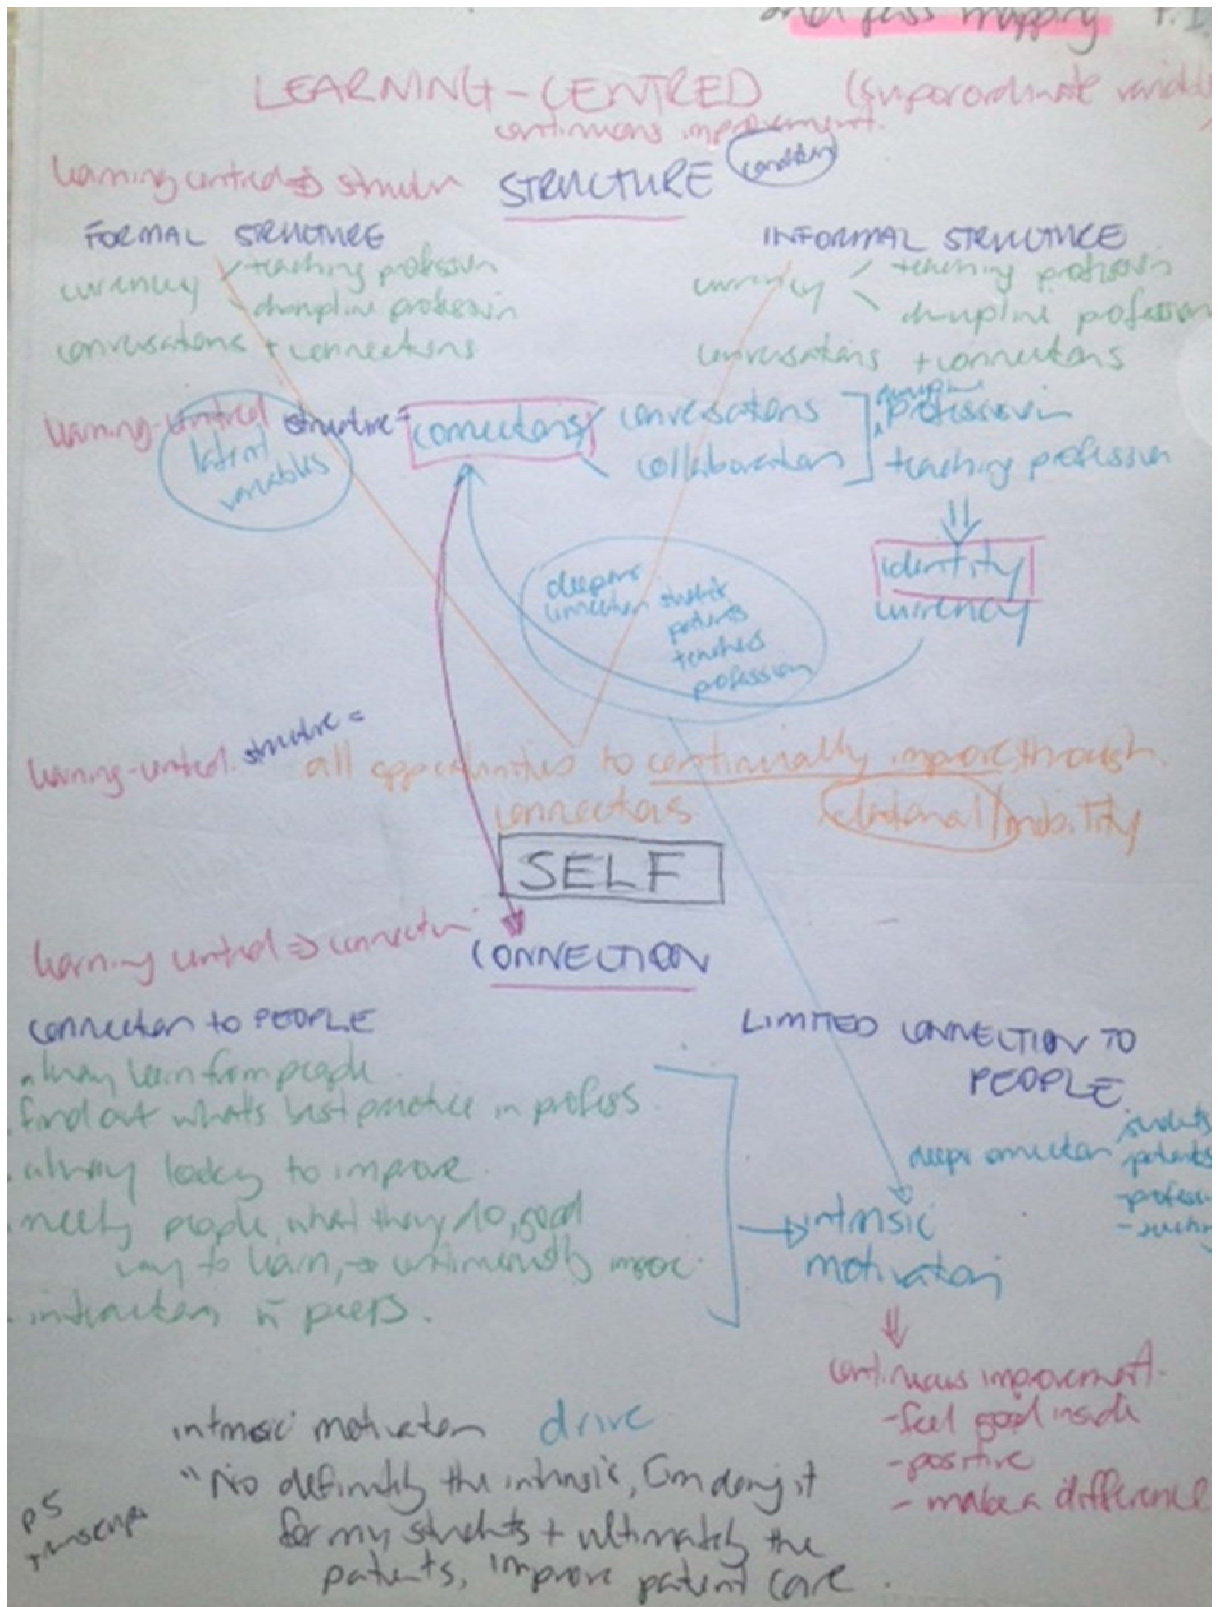 mapping P.1
LEARNING-CENTRED (superordinate variable
continuous improvement.
learning centred ⇒ structure STRUCTURE
FORMAL STRUCTURE
currency teaching profession
discipline profession
conversations + connections
INFORMAL STRUCTURE
currency teaching profession
discipline profession
conversations + connections
learning-centred structure = connections conversations profession
collaboration teaching profession
latent
variables
identity
currency
deepens
connection students
patients
teachers
profession
learning-centred structure =
all opportunities to continually improve through
connections relational/mobility
SELF
learning centred ⇒ connection
CONNECTION
connection to PEOPLE
always learn from people
. find out what's best practice in profess.
. always looking to improve.
. meeting people, what they do, good
way to learn, → continuously improve.
. interaction peers.
LIMITED CONNECTION TO
PEOPLE
deeper connection students
patients
- profess
intrinsic
motivation
continuous improvement.
- feel good inside
- positive
- make a difference
intrinsic motivation drive
"No definitely the intrinsic, I'm doing it
for my students + ultimately the
patients, improve patient care.
p5
transcript